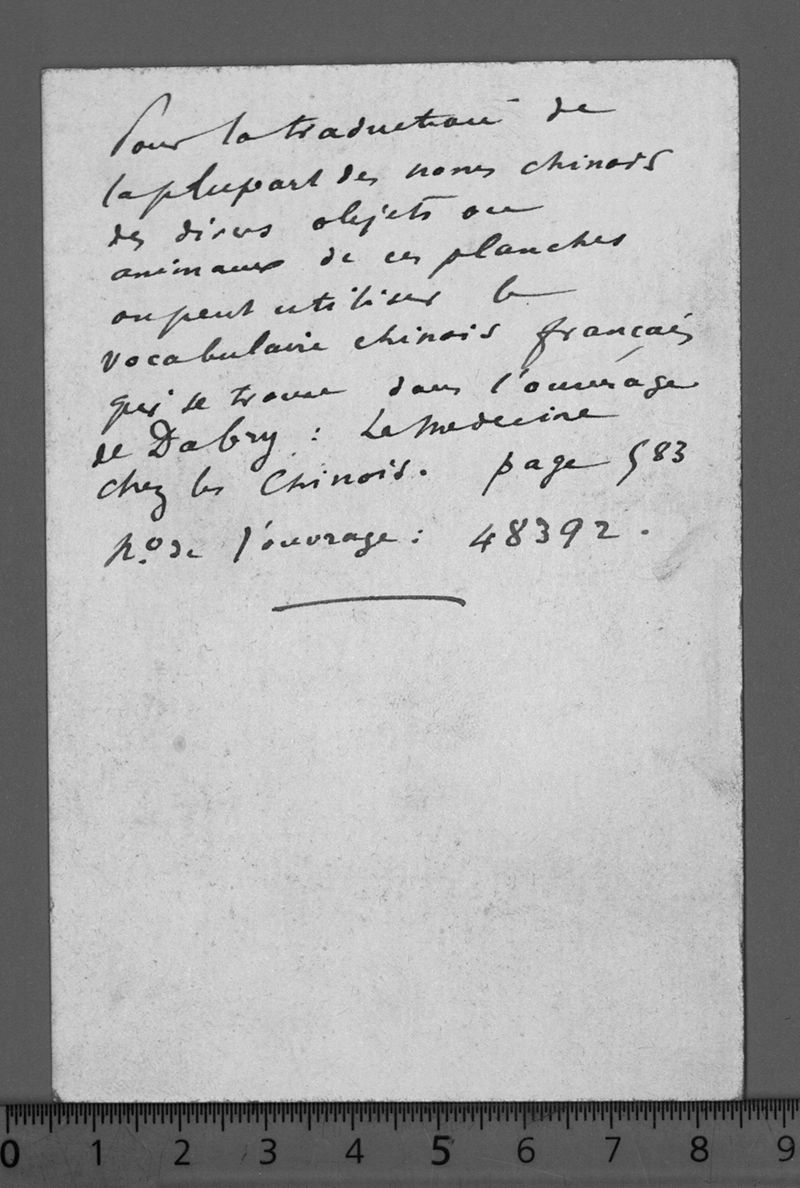 Pour la traduction de
la plupart des noms chinois
des divers objets ou
animaux de ces planches
on peut utiliser le
vocabulaire chinois français
qui se trouve dans l'ouvrage
de Dabry : La Medecine
chez les Chinois. page 583
No. de l'ouvrage : 48392.
0 1 2 3 4 5 6 7 8 9